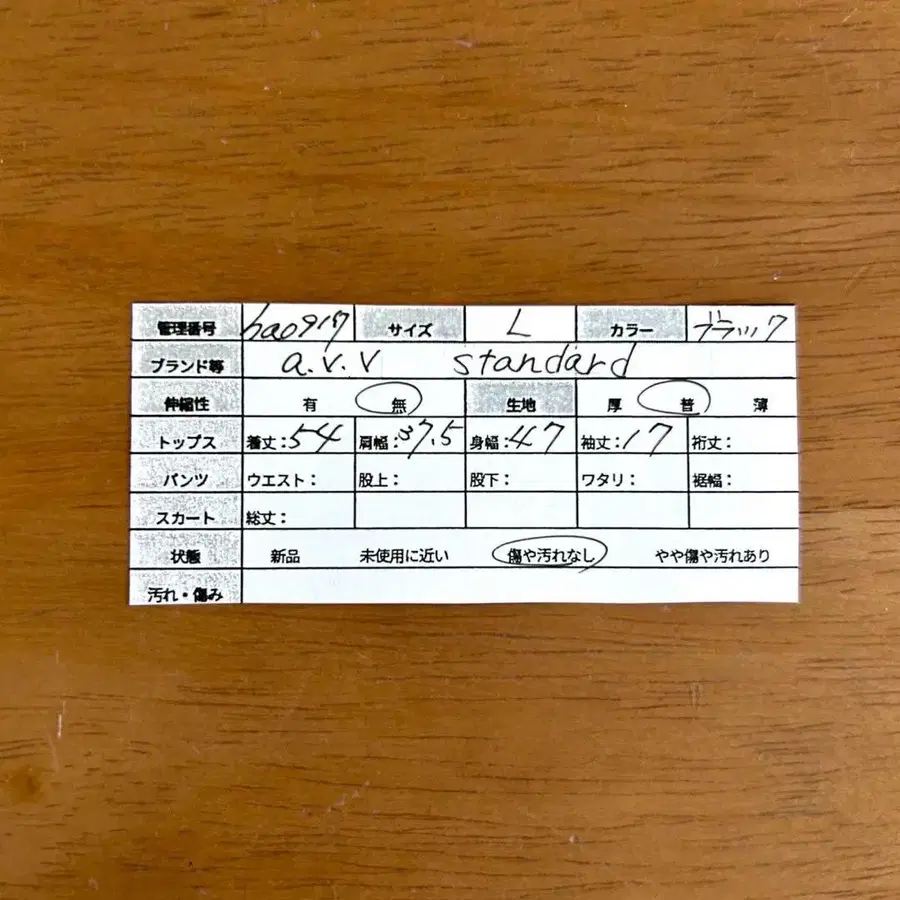 管理番号 hao917 サイズ L カラー ブラック
ブランド等 a.v.v standard
伸縮性 有 無 生地 厚 普 薄
トップス 着丈:54 肩幅:37.5 身幅:47 袖丈:17 裄丈:
パンツ ウエスト: 股上: 股下: ワタリ: 裾幅:
スカート 総丈:
状態 新品 未使用に近い 傷や汚れなし やや傷や汚れあり
汚れ・傷み